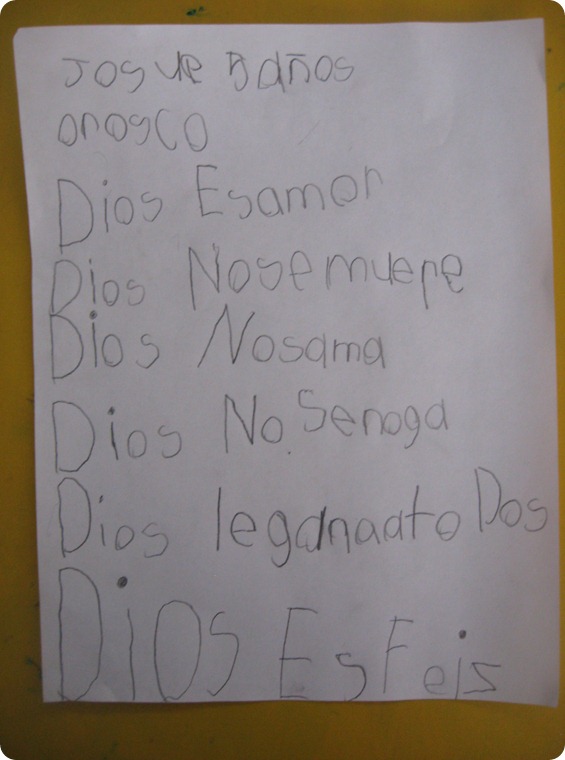 Josue Baños
orosco
Dios Esamor
Dios Nosemuere
Dios Nosama
Dios No Senoga
Dios leganaato Dos
Dios Es Feis